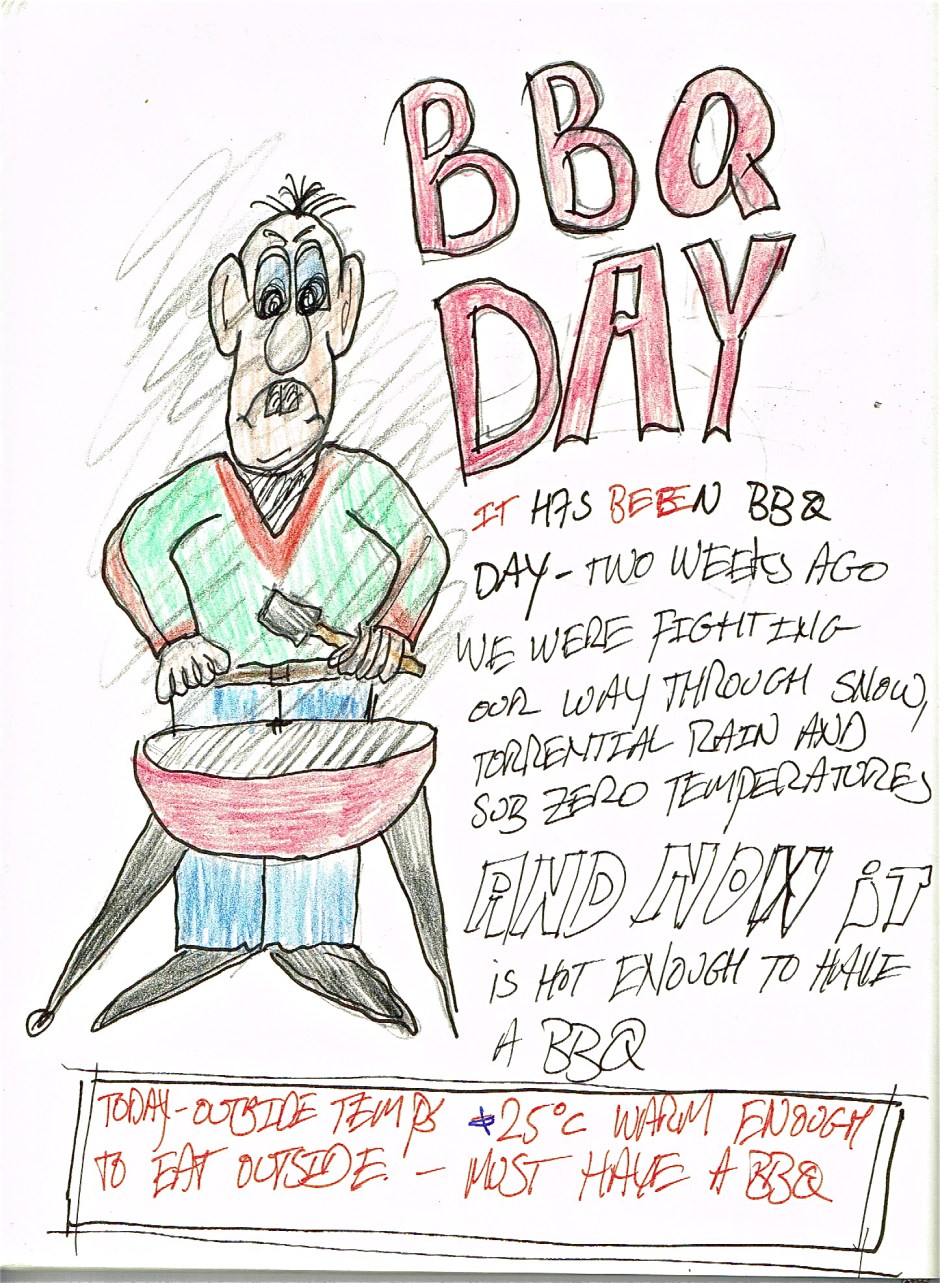 BBQ
DAY
IT HAS BEEEN BBQ
DAY - TWO WEEKS AGO
WE WERE FIGHTING
OUR WAY THROUGH SNOW,
TORRENTIAL RAIN AND
SUB ZERO TEMPERATURES
AND NOW iT
iS HOT ENOUGH TO HAVE
A BBQ
TODAY - OUTSIDE TEMPS +25°C WARM ENOUGH
TO EAT OUTSIDE. - MUST HAVE A BBQ